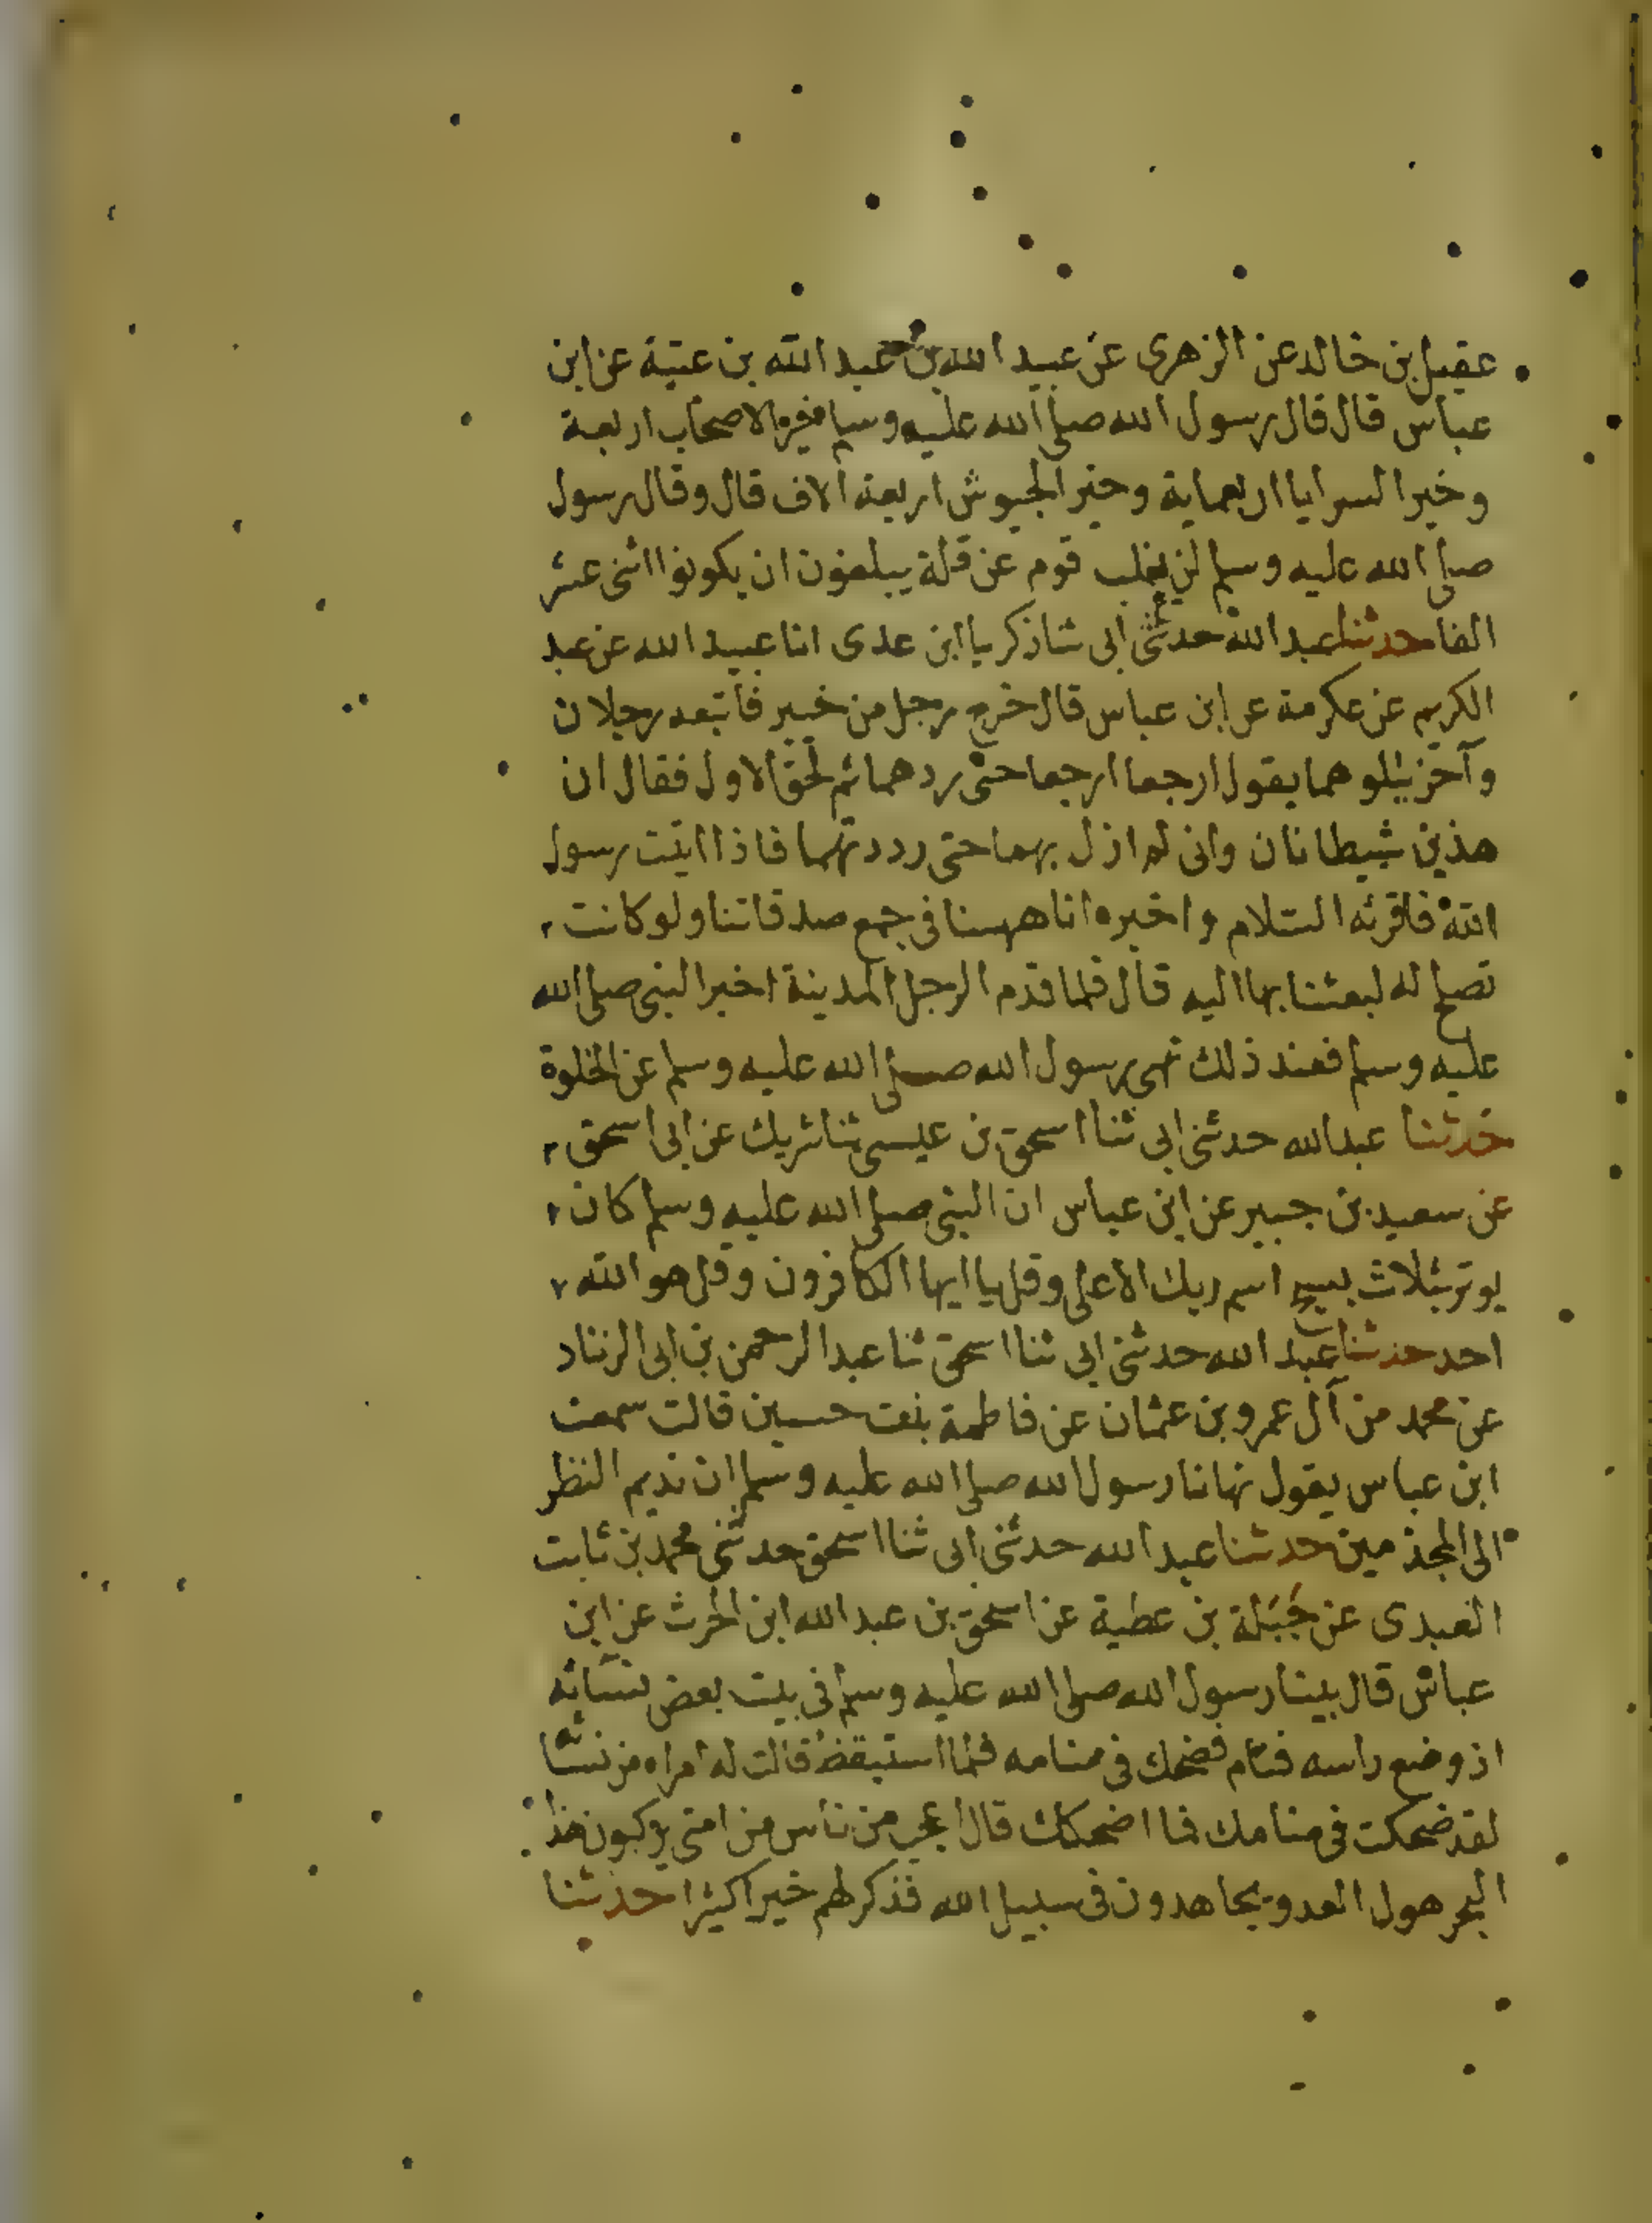 عقيل بن خالد عن الزهرى عن عبيد الله بن عبد الله بن عتبة عن ابن
عباس قال قال رسول الله صلى الله عليه وسلم خير الاصحاب اربعة
وخير السرايا اربعماية وخير الجيوش اربعة الاف قال وقال رسول
صلى الله عليه وسلم لن يغلب قوم عن قلة يبلغون ان يكونوا اثنى عشر
الفا حدثنا عبد الله حدثنى ابى ثنا زكريا ابن عدى انا عبيد الله عن عبد
الكريم عن عكرمة عن ابن عباس قال خرج رجل من خيبر فأتبعه رجلان
وآخر يتلوهما يقول ارجعا ارجعا حتى ردهما ثم لحق الاول فقال ان
هذين شيطانان وانى لم ازل بهما حتى رددتهما فاذا اتيت رسول
الله فاقرئه السلام واخبره اناههنا فى جمع صدقاتنا ولو كانت
تصلح له لبعثنا بها اليه قال فلما قدم الرجل المدينة اخبر النبى صلى الله
عليه وسلم فعند ذلك نهى رسول الله صلى الله عليه وسلم عن الخلوة
حدثنا عبد الله حدثنى ابى ثنا اسحق بن عيسى ثنا شريك عن ابى اسحق
عن سعيد بن جبير عن ابن عباس ان النبى صلى الله عليه وسلم كان
يوتر بثلاث بسبح اسم ربك الاعلى وقل يا ايها الكافرون وقل هو الله
احد حدثنا عبد الله حدثنى ابى ثنا اسحق ثنا عبد الرحمن بن ابى الزناد
عن محمد من آل عمرو بن عثمان عن فاطمة بنت حسين قالت سمعت
ابن عباس يقول نهانا رسول الله صلى الله عليه وسلم ان نديم النظر
الى المجذمين حدثنا عبد الله حدثنى ابى ثنا اسحق حدثنى محمد بن ثابت
العبدى عن جَبَلة بن عطية عن اسحق بن عبد الله ابن الحرث عن ابن
عباس قال بينا رسول الله صلى الله عليه وسلم فى بيت بعض نسائه
اذ وضع راسه فنام فضحك فى منامه فلما استيقظ قالت له امراه من نسائه
لقد ضحكت فى منامك فما اضحكك قال اعجب من ناس من امتى يركبون هذا
البحر هول العدو يجاهدون فى سبيل الله فذكر لهم خيرا كثيرا حدثنا